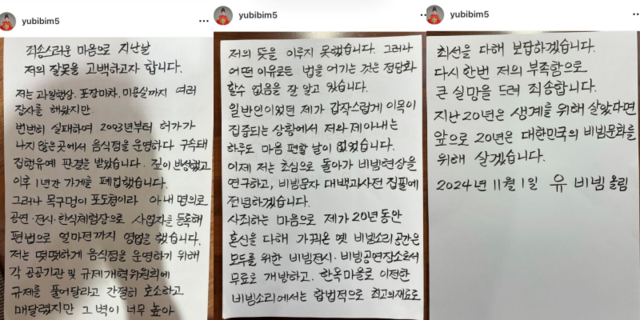 yubibim5
죄송스러운 마음으로 지난날
저의 잘못을 고백하고자 합니다.
저는 과일행상, 포장마차, 미용실까지 여러
장사를 해왔지만
번번히 실패하여 2003년부터 허가가
나지 않는 곳에서 음식점을 운영하다 구속돼
집행유예 판결을 받았습니다. 깊이 반성했고
이후 1년간 가게를 폐업했습니다.
그러나 목구멍이 포도청이라 아내 명의로
공연·전시·한식체험장으로 사업자등록해
편법으로 얼마전까지 영업을 했습니다.
저는 떳떳하게 음식점을 운영하기 위해
각 공공기관 및 규제개혁위원회에
규제를 풀어달라고 간절히 호소하고
매달렸지만 그 벽이 너무 높아
yubibim5
저의 뜻을 이루지 못했습니다. 그러나
어떤 이유로든 법을 어기는 것은 정당화
할수 없음을 잘 알고 있습니다.
일반인이었던 제가 갑작스럽게 이목이
집중되는 상황에서 저와 제아내는
하루도 마음 편할 날이 없었습니다.
이제 저는 초심으로 돌아가 비빔현상을
연구하고, 비빔문자 대백과사전 집필에
전념하겠습니다.
사죄하는 마음으로 제가 20년 동안
혼신을 다해 가꿔온 옛 비빔소리 공간은
모두를 위한 비빔전시·비빔공연장소로서
무료로 개방하고, 한옥마을로 이전한
비빔소리에서는 합법적으로 최고의 재료로
yubibim5
최선을 다해 보답하겠습니다.
다시 한번 저의 부족함으로
큰 실망을 드려 죄송합니다.
지난 20년은 생계를 위해 살았다면
앞으로 20년은 대한민국의 비빔문화를
위해 살겠습니다.
2024년 11월 1일 유 비빔 올림